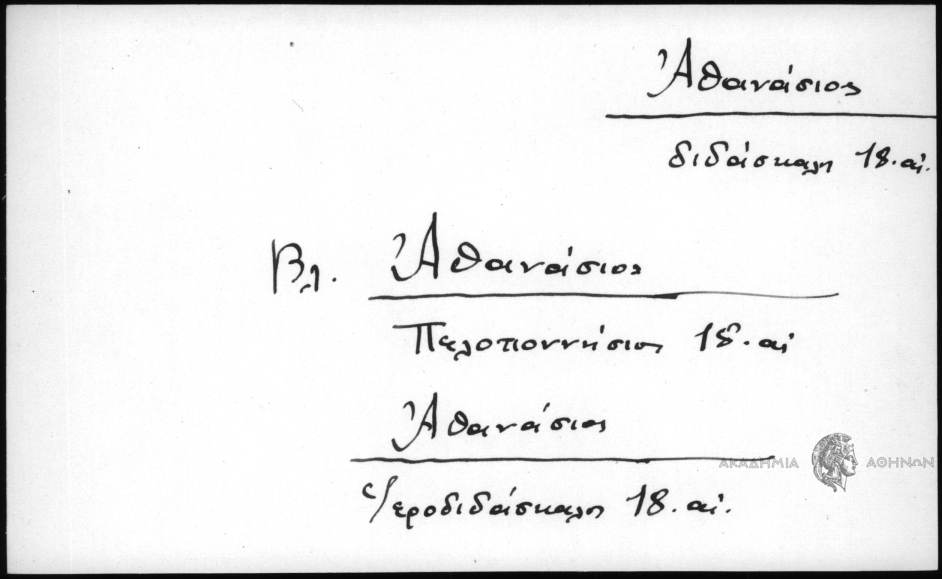 Ἀθανάσιος
διδάσκαλος 18. αἰ.
Βλ. Ἀθανάσιος
Πελοποννήσιος 18. αἰ
Ἀθανάσιος
ἱεροδιδάσκαλος 18. αἰ.
ΑΚΑΔΗΜΙΑ ΑΘΗΝΩΝ